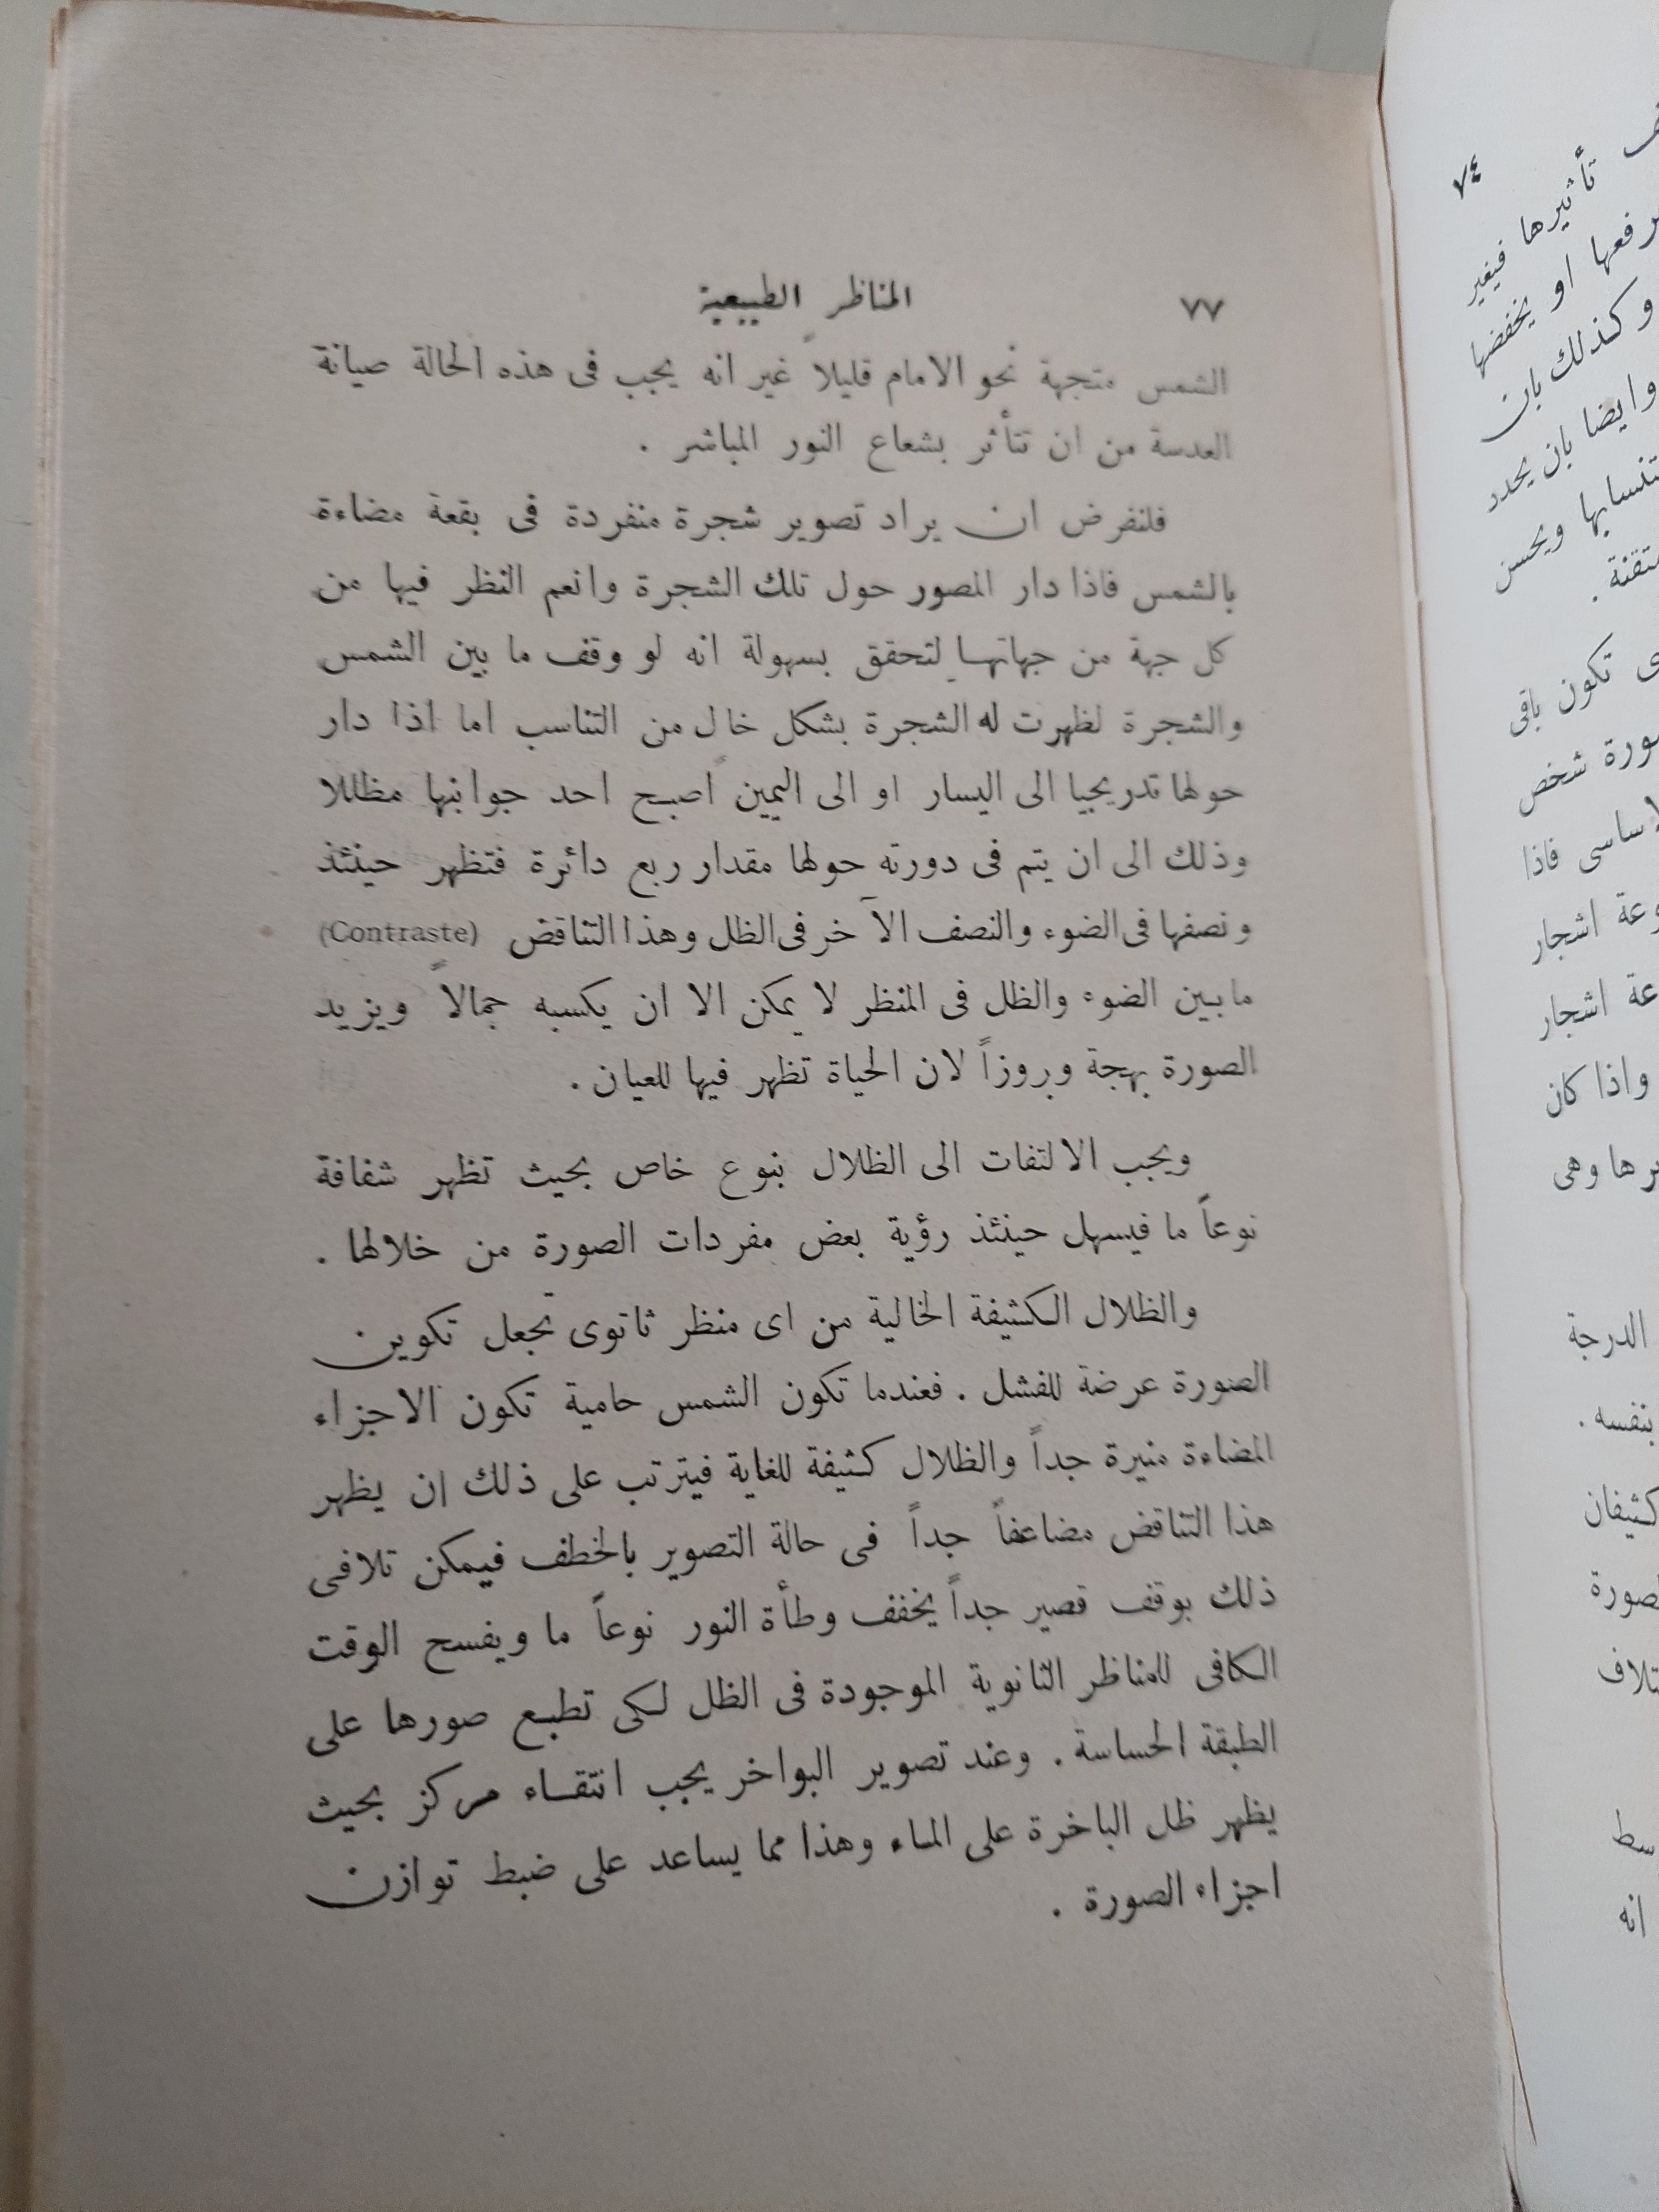 ٧٧ المناظر الطبيعية
الشمس متجهة نحو الامام قليلاً غير انه يجب فى هذه الحالة صيانة
العدسة من ان تتأثر بشعاع النور المباشر .
فلنفرض ان يراد تصوير شجرة منفردة فى بقعة مضاءة
بالشمس فاذا دار المصور حول تلك الشجرة وانعم النظر فيها من
كل جهة من جهاتها لتحقق بسهولة انه لو وقف ما بين الشمس
والشجرة لظهرت له الشجرة بشكل خال من التناسب اما اذا دار
حولها تدريجيا الى اليسار او الى اليمين اصبح احد جوانبها مظللا
وذلك الى ان يتم فى دورته حولها مقدار ربع دائرة فتظهر حينئذ
ونصفها فى الضوء والنصف الآخر فى الظل وهذا التناقض (Contraste)
ما بين الضوء والظل فى المنظر لا يمكن الا ان يكسبه جمالاً ويزيد
الصورة بهجة وروزاً لان الحياة تظهر فيها للعيان .
ويجب الالتفات الى الظلال بنوع خاص بحيث تظهر شفافة
نوعاً ما فيسهل حينئذ رؤية بعض مفردات الصورة من خلالها .
والظلال الكثيفة الخالية من اى منظر ثانوى تجعل تكوين
الصورة عرضة للفشل . فعندما تكون الشمس حامية تكون الاجزاء
المضاءة منيرة جداً والظلال كثيفة للغاية فيترتب على ذلك ان يظهر
هذا التناقض مضاعفاً جداً فى حالة التصوير بالخطف فيمكن تلافى
ذلك بوقف قصير جداً يخفف وطأة النور نوعاً ما ويفسح الوقت
الكافى للمناظر الثانوية الموجودة فى الظل لكى تطبع صورها على
الطبقة الحساسة . وعند تصوير البواخر يجب انتقاء مركز بحيث
يظهر ظل الباخرة على الماء وهذا مما يساعد على ضبط توازن
اجزاء الصورة .
٧٤
تأثيرها فيغير
او يخفضها
وكذلك بان
وايضا بان يحدد
ويحسن
تكون باقى
شخص
فاذا
اشجار
اشجار
واذا كان
وهى
الدرجة
بنفسه .
انه